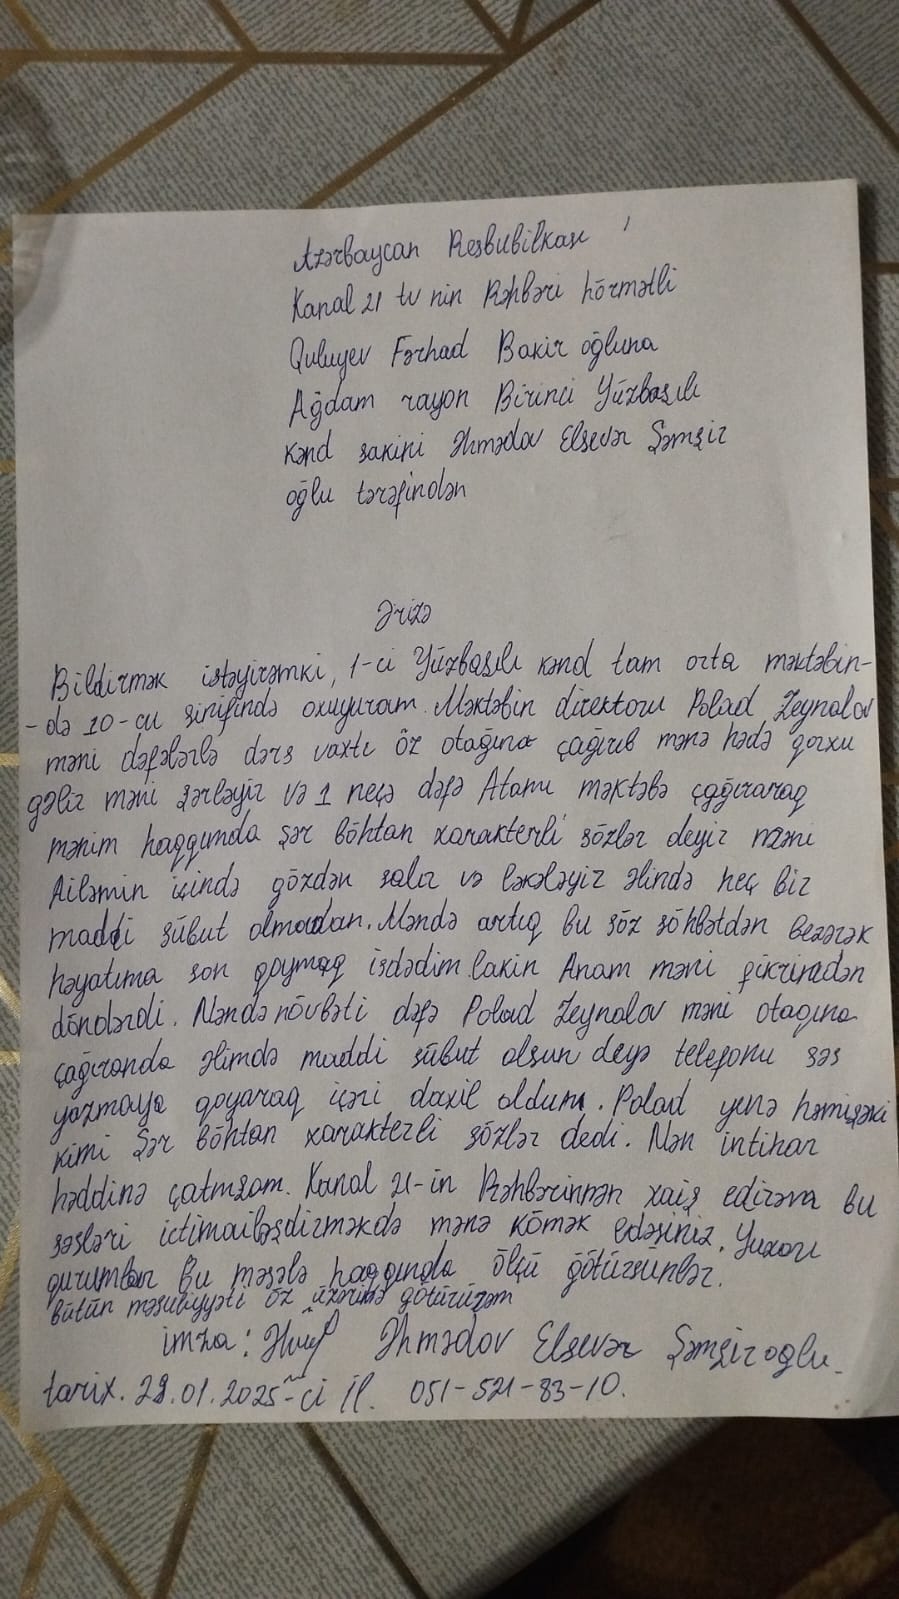 Azərbaycan Resbubilkası
Kanal 21 tv nin Rəhbəri hörmətli
Quluyev Fərhad Bakir oğluna
Ağdam rayon Birinci Yüzbaşılı
kənd sakini Əhmədov Elsevər Şəmşir
oğlu tərəfindən
Ərizə
Bildirmək istəyirəmki, 1-ci Yüzbaşılı kənd tam orta məktəbin-
-də 10-cu sinifində oxuyuram. Məktəbin direktoru Polad Zeynalov
məni dəfələrlə dərs vaxtı öz otağına çağırıb mənə hədə qorxu
gəlir məni şərləyir və 1 neçə dəfə Atamı məktəbə çağıraraq
mənim haqqımda şər böhtan xarakterli sözlər deyir məni
Ailəmin içində gözdən salır və ləkələyir əlində heç bir
maddi sübut olmadan. Məndə artıq bu söz söhbətdən bezərək
həyatıma son qoymaq isdədim lakin Anam məni fikrimdən
döndərdi. Məndə növbəti dəfə Polad Zeynalov məni otagına
çağıranda əlimdə maddi sübut olsun deyə telefonu səs
yazmaya qoyaraq içəri daxil oldum. Polad yenə həmişəki
kimi Şər böhtan xarakterli sözlər dedi. Mən intihar
həddinə çatmışam. Kanal 21-in Rəhbərinnən xaiş edirəm bu
səsləri ictimailəşdirməkdə mənə kömək edəsiniz. Yuxarı
qurumlar Bu məsələ haqqında ölçü götürsünlər.
bütün məsuliyyəti öz üzərimə götürürəm
imza: Əhmədov Elsevər Şəmşiroglu
tarix. .01.2025-ci il. 051-521-83-10.